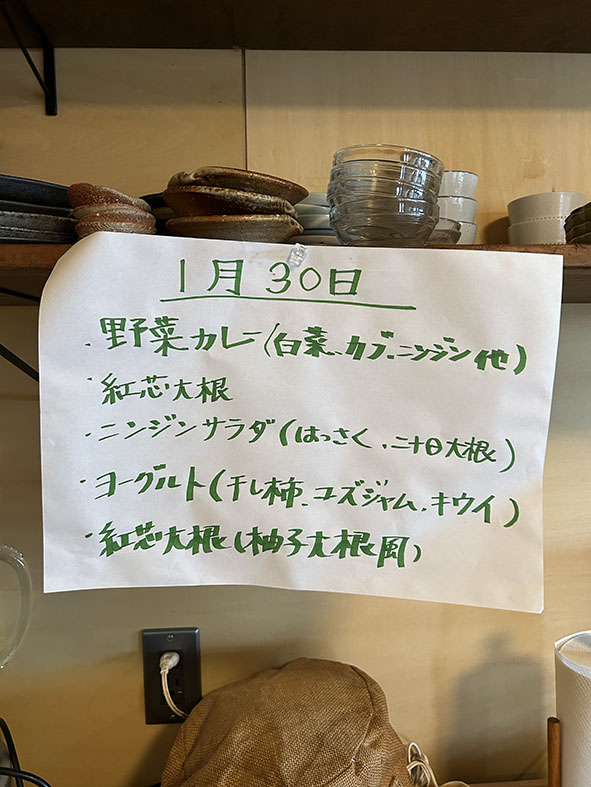 1月30日
・野菜カレー(白菜、カブ、ニンジン他)
・紅芯大根
・ニンジンサラダ(はっさく、二十日大根)
・ヨーグルト(干し柿、ユズジャム、キウイ)
・紅芯大根(柚子大根風)